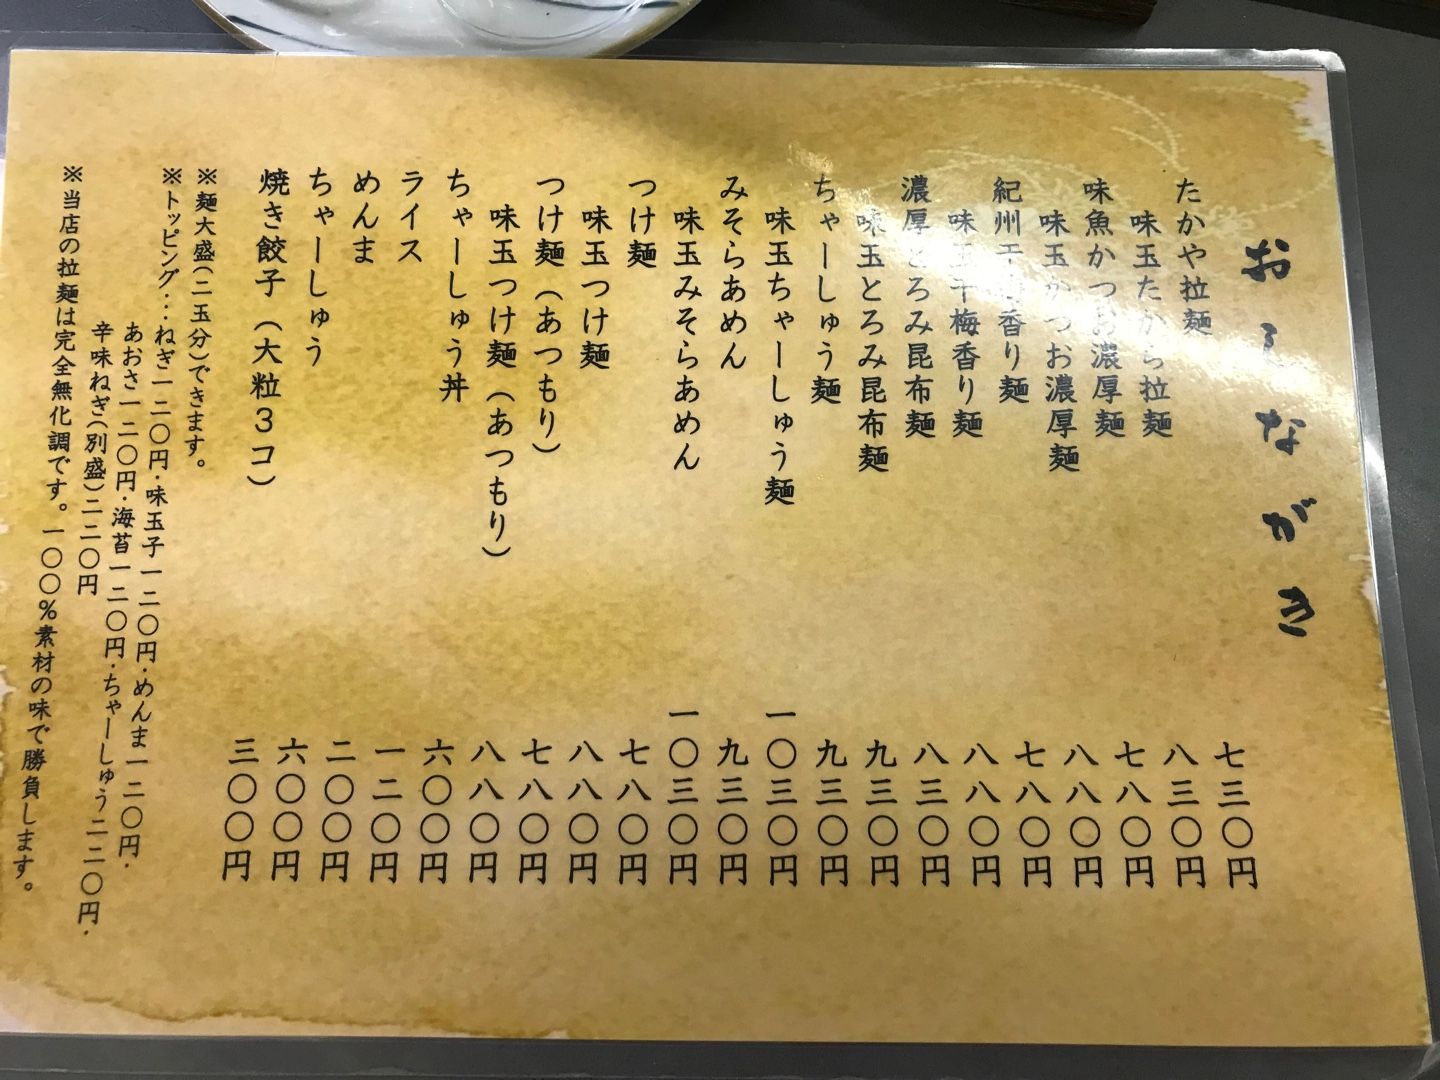 おしながき
たかや拉麺 七三〇円
味玉たかや拉麺 八三〇円
味魚かつお濃厚麺 七八〇円
味玉かつお濃厚麺 八八〇円
紀州干梅香り麺 七八〇円
味玉干梅香り麺 八八〇円
濃厚とろみ昆布麺 八三〇円
味玉とろみ昆布麺 九三〇円
ちゃーしゅう麺 九三〇円
味玉ちゃーしゅう麺 一〇三〇円
みそらあめん 九三〇円
味玉みそらあめん 一〇三〇円
つけ麺 七八〇円
味玉つけ麺 八八〇円
つけ麺（あつもり） 七八〇円
味玉つけ麺（あつもり） 八八〇円
ちゃーしゅう丼 六〇〇円
ライス 一二〇円
めんま 二〇〇円
ちゃーしゅう 六〇〇円
焼き餃子（大粒３コ） 三〇〇円
※麺大盛（二玉分）できます。
※トッピング…ねぎ一二〇円・味玉子一二〇円・めんま一二〇円・
あおさ一二〇円・海苔一二〇円・ちゃーしゅう二二〇円・
辛味ねぎ（別盛）二二〇円
※当店の拉麺は完全無化調です。一〇〇％素材の味で勝負します。